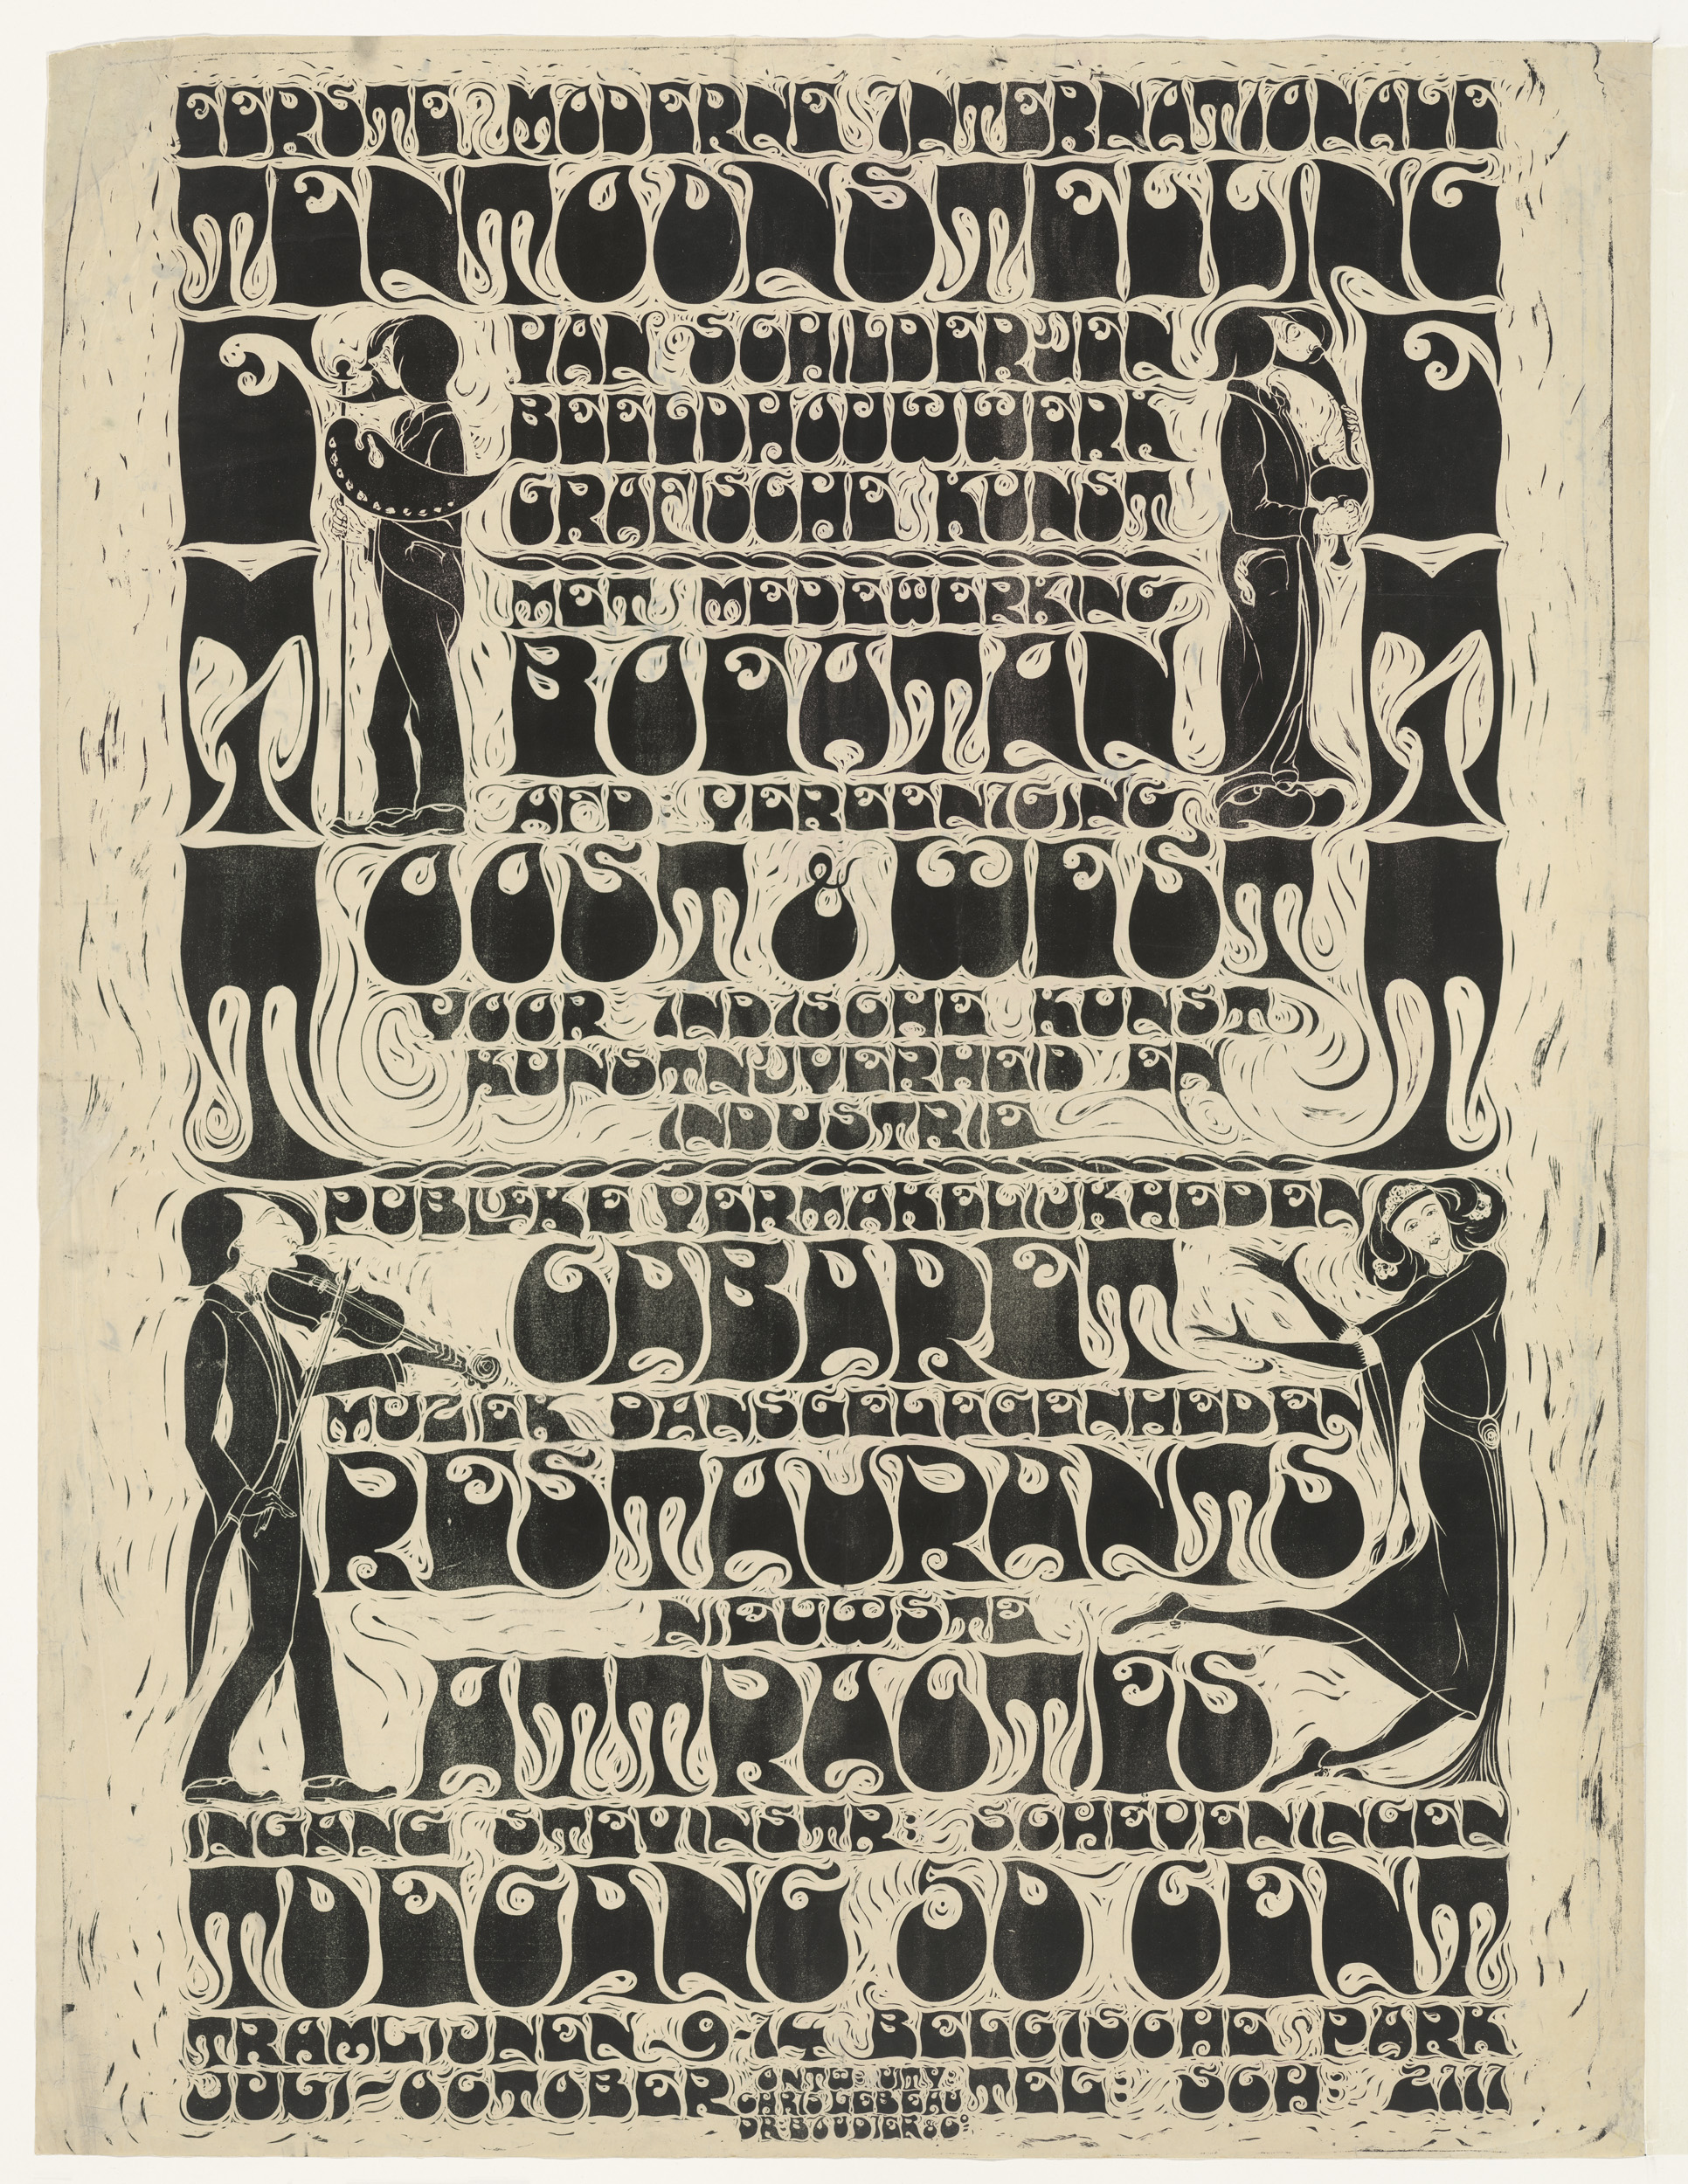 EERSTE MODERNE INTERNATIONALE
TENTOONSTELLING
VAN SCHILDERIJEN
BEELDHOUWWERK
GRAFISCHE KUNST
MET MEDEWERKING
BOEATAN
AFD: VEREENIGING
OOST & WEST
VOOR INDISCHE KUNST
KUNSTNIJVERHEID EN
INDUSTRIE
E
M
T
E
M
T
PUBLIJKE VERMAKELIJKHEDEN
CABARET
MUZIEK DANSGELEGENHEDEN
RESTAURANTS
NIEUWSTE
ATTRACTIES
INGANG STEVINSTR: SCHEVENINGEN
TOEGANG 60 CENT
TRAMLIJNEN 9-14 BELGISCHE PARK
JULI-OCTOBER TEL: SCH: 2111
ONTW: UITV:
CHRIS LEBEAU
DR: BOUDIER & Co: